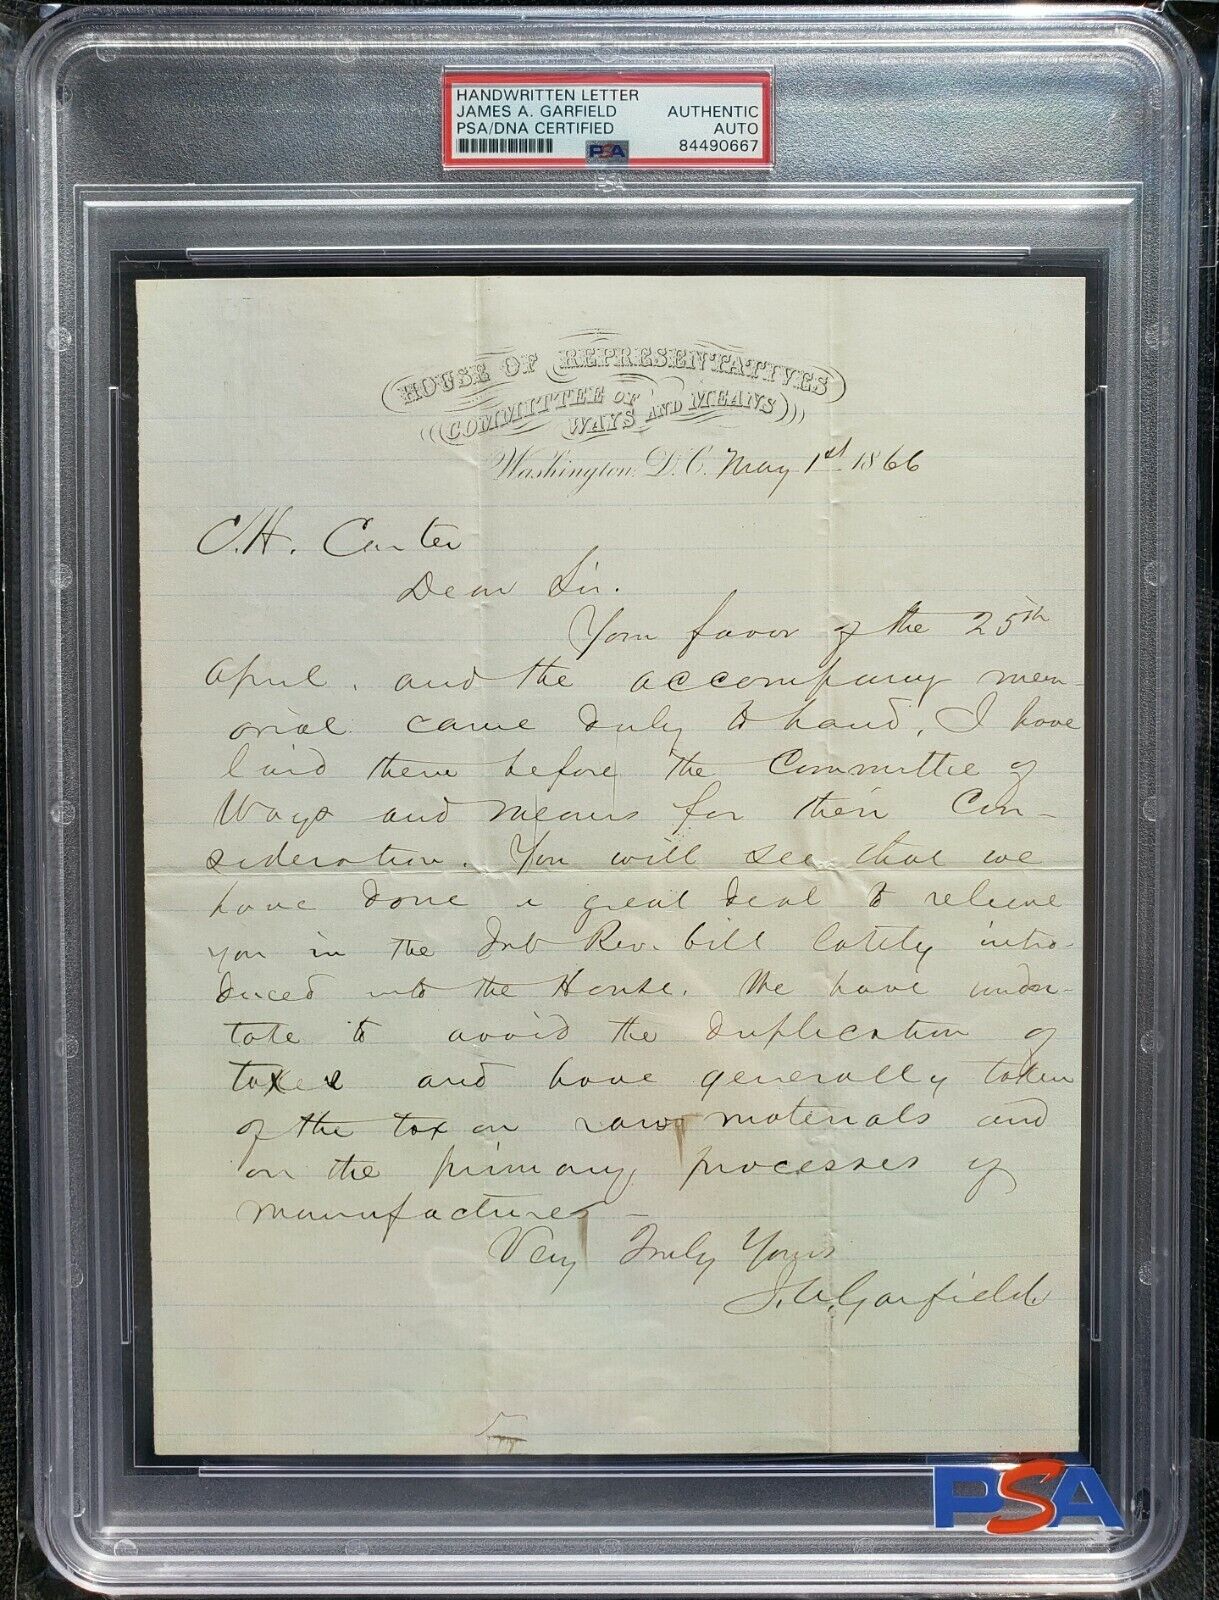 HANDWRITTEN LETTER
JAMES A. GARFIELD AUTHENTIC
PSA/DNA CERTIFIED AUTO
PSA 84490667
PSA
HOUSE OF REPRESENTATIVES
COMMITTEE OF WAYS AND MEANS
Washington, D.C. May 1st 1866
C.H. Carter
Dear Sir.
Your favor of the 25th
April, and the accompany mem-
orial came duly to hand, I have
laid them before the Committee of
Ways and Means for their Con-
sideration. You will see that we
have done a great deal to relieve
you in the Int Rev. bill lately intro-
duced into the House. We have under-
take to avoid the duplication of
taxes and have generally taken
off the tax on raw materials and
on the primary processes of
manufactures -
Very Truly Yours
J.A. Garfield
PSA